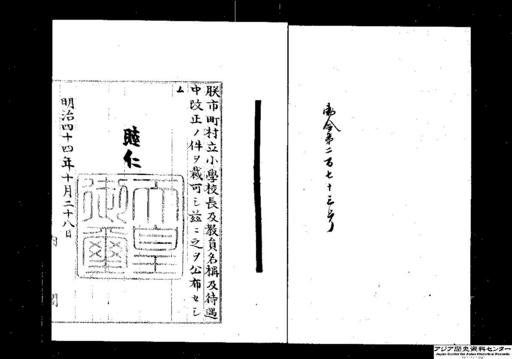 勅令第二百七十三号
朕市町村立小學校長及教員名稱及待遇
中改正ノ件ヲ裁可シ茲ニ之ヲ公布セシ
ム
睦仁
天皇御璽
明治四十四年十月二十八日
内閣
アジア歴史資料センター
Japan Center for Asian Historical Records